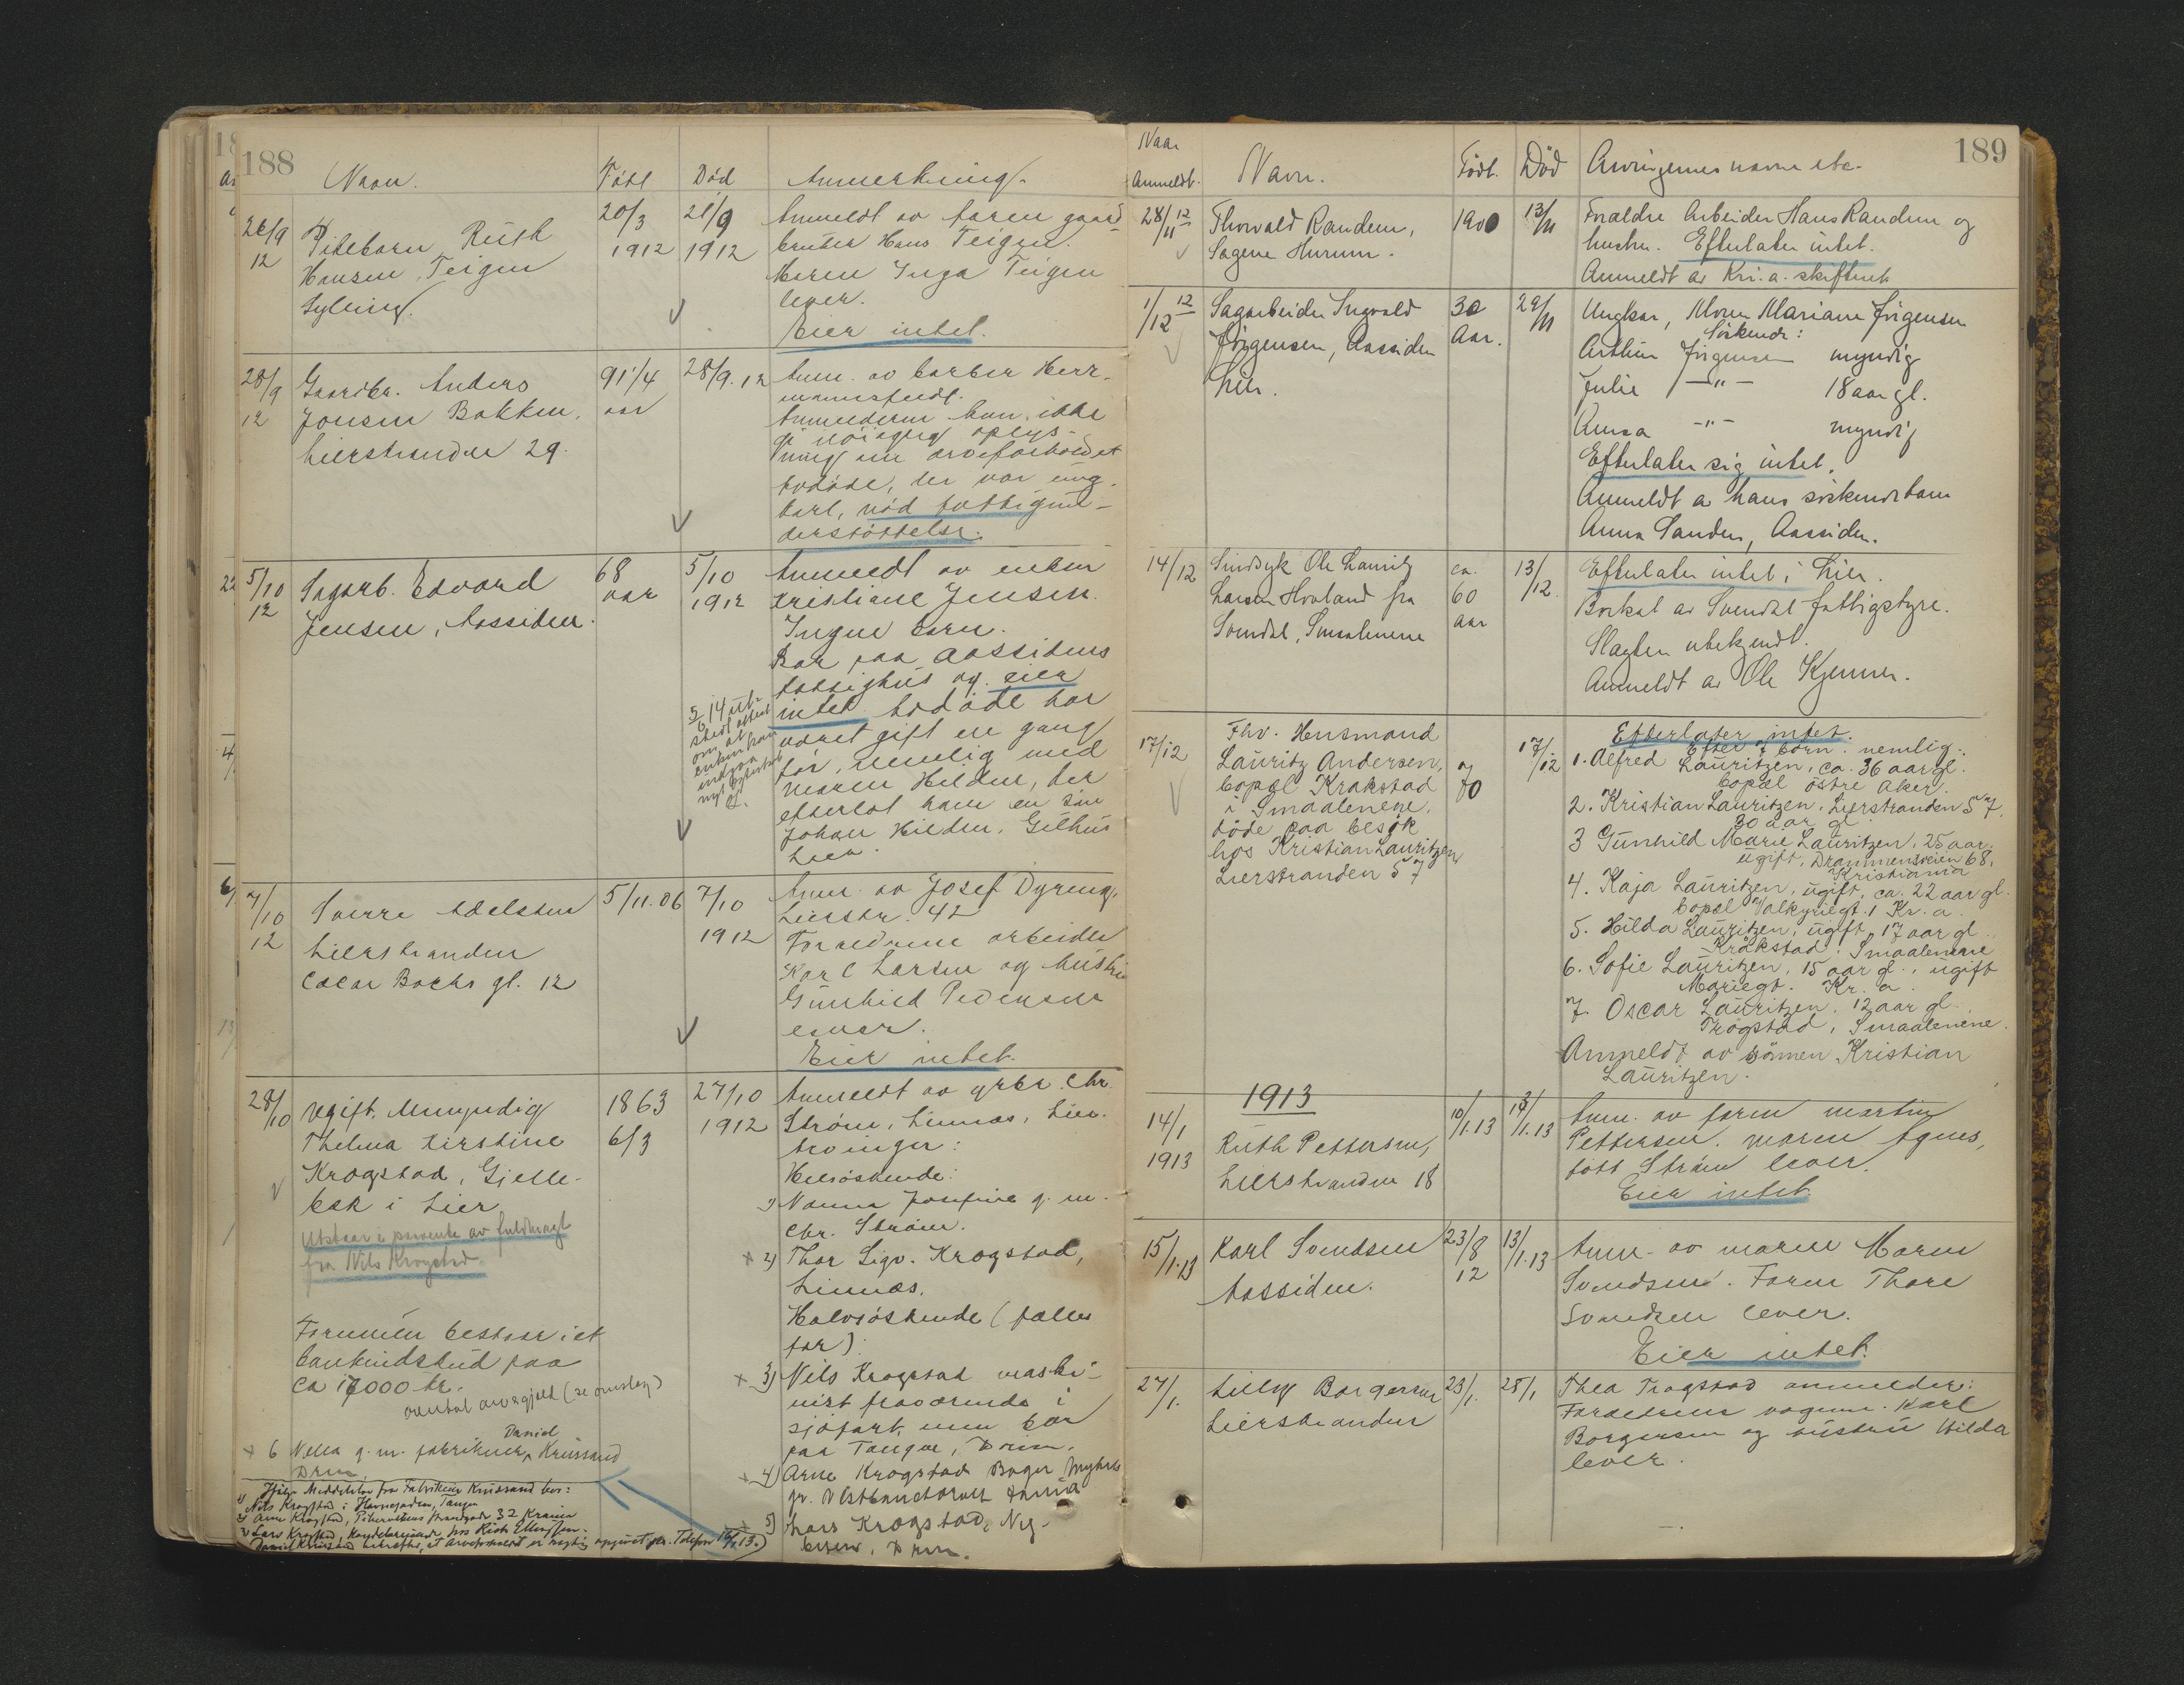 188
Navn. Født Død Anmerkning.
26/9 12 Pikebarn Ruth 20/3 1912 21/9 1912
Hansen Teigen
Sylling.
Anmeldt av faren gaard-
bruker Hans Teigen.
Moren Inga Teigen
lever.
Eier intet.
28/9 12 Gaardbr. Anders 91 1/4 aar 28/9.12
Jonsen Bakken,
Lierstranden 29.
Anm. av barber Herr-
mannsfeldt.
Anmelderen kan ikke
gi nöiagtig oplys-
ning om arveforholdet
avdöde, der var ung-
karl, nöd fattigun-
derstöttelse.
5/10 12 Sagarb. Edvard 68 aar 5/10 1912
Jensen, Aassiden.
Anmeldt av enken
Kristiane Jensen.
Ingen barn.
Bor paa Aassidens
fattighus og eier
intet. Avdöde har
været gift en gang
för, nemlig med
Maren Hilden, der
efterlot ham en sön
Johan Hilden, Gilhus
Lier.
5/6 14 utstedt attest
om at
enken kan
indgaa
nyt egteskab
7/10 12 Sverre Adelsten 5/11.06 7/10 1912
Lierstranden
Oscar Bochs gl. 12
Anm. av Josef Dyring,
Lierstr. 42
Forældrene arbeider
Karl Larsen og hustru
Gunhild Pedersen
lever.
Eier intet.
28/10 Ugift, Umyndig 1863 6/3 27/10 1912
Thelma Kirstine
Krogstad, Gjelle-
bæk i Lier
Utstaar i paavente av fuldmagt
fra Nils Krogstad.
Formuen bestaar i et
bankindskud paa
ca 17000 kr.
Anmeldt av grbr. Chr.
Ström, Linnes, Lier.
Arvinger:
Helsöskende:
1) Nanna Josefine g. m.
Chr. Ström.
x 2) Thor Sigv. Krogstad,
Linnes.
Halvsöskende (fælles
far):
x 3) Nils Krogstad maski-
nist fraværende i
sjöfart, men bor
paa Tangen, Drm.
x 4) Arne Krogstad Bager
5) Lars Krogstad,
Drm.
x 6 Nella g. m. fabrikeier Daniel Knissand
Drm
Ifølge Meddelelse fra Fabrikeier Knissand bor:
1) Nils Krogstad i Havnegaden, Tangen
Naar
Anmeldt. Navn. Födt. Död Arvingernes navne etc. 189
28/11 12 Thorvald Randem, 1900 13/11
Sagene Hurum.
Forældre Arbeider Hans Randem og
hustru. Efterlater intet.
Anmeldt av Kr.a. skifteret
1/12 12 Sagarbeider Ingvald 30 Aar. 29/11
Jörgensen, Aassiden
Lier.
Ungkar, Moren Mariane Jörgensen
Söskende:
Arthur Jörgensen myndig
Julie —"— 18 aar gl.
Anna —"— myndig
Efterlater sig intet.
Anmeldt av hans söskendebarn
Anna Sanden, Aassiden.
14/12 Sindsyk Ole Lauritz ca. 60 aar 13/12.
Larsen Hovland fra
Svendal, Smaalenene
Efterlater intet i Lier.
Bortsat av Svendal fattigstyre.
Slagten ubekjendt.
Anmeldt av Ole Kjenner.
17/12 Fhv. Husmand 70 17/12
Lauritz Andersen,
bopæl Krakstad
i Smaalenene,
döde paa besök
hos Kristian Lauritzen
Lierstranden 57
Efterlater intet.
Efter 7 börn: nemlig:
1. Alfred Lauritzen, ca. 36 aar gl.
bopæl östre Aker.
2. Kristian Lauritzen, Lierstranden 57,
30 aar gl.
3 Gunhild Marie Lauritzen, 25 aar,
ugift, Drammensveien 68,
Kristiania
4. Kaja Lauritzen, ugift, ca. 22 aar gl.
bopæl Valkyriegt. 1 Kr. a.
5. Hilda Lauritzen, ugift, 17 aar gl.
Kråkstad, Smaalenene
6. Sofie Lauritzen, 15 aar gl., ugift
Mariegt. Kr. a.
7. Oscar Lauritzen, 12 aar gl.
Trögstad, Smaalenene.
Anmeldt av sönnen Kristian
Lauritzen.
1913
14/1 1913 Ruth Pettersen, 10/1.13 13/1.13
Lierstranden 18
Anm. av faren Martin
Pettersen. Moren Agnes,
född Ström lever.
Eier intet.
15/1.13 Karl Svendsen 23/8 12 13/1.13
Aassiden.
Anm. av moren Maren
Svendsen. Faren Thore
Svendsen lever.
Eier intet.
27/1. Lilly Borgersen 23/1. 25/1
Lierstranden
Thea Trogstad anmelder:
Forældrene vognm. Karl
Borgersen og hustru Hilda
lever.